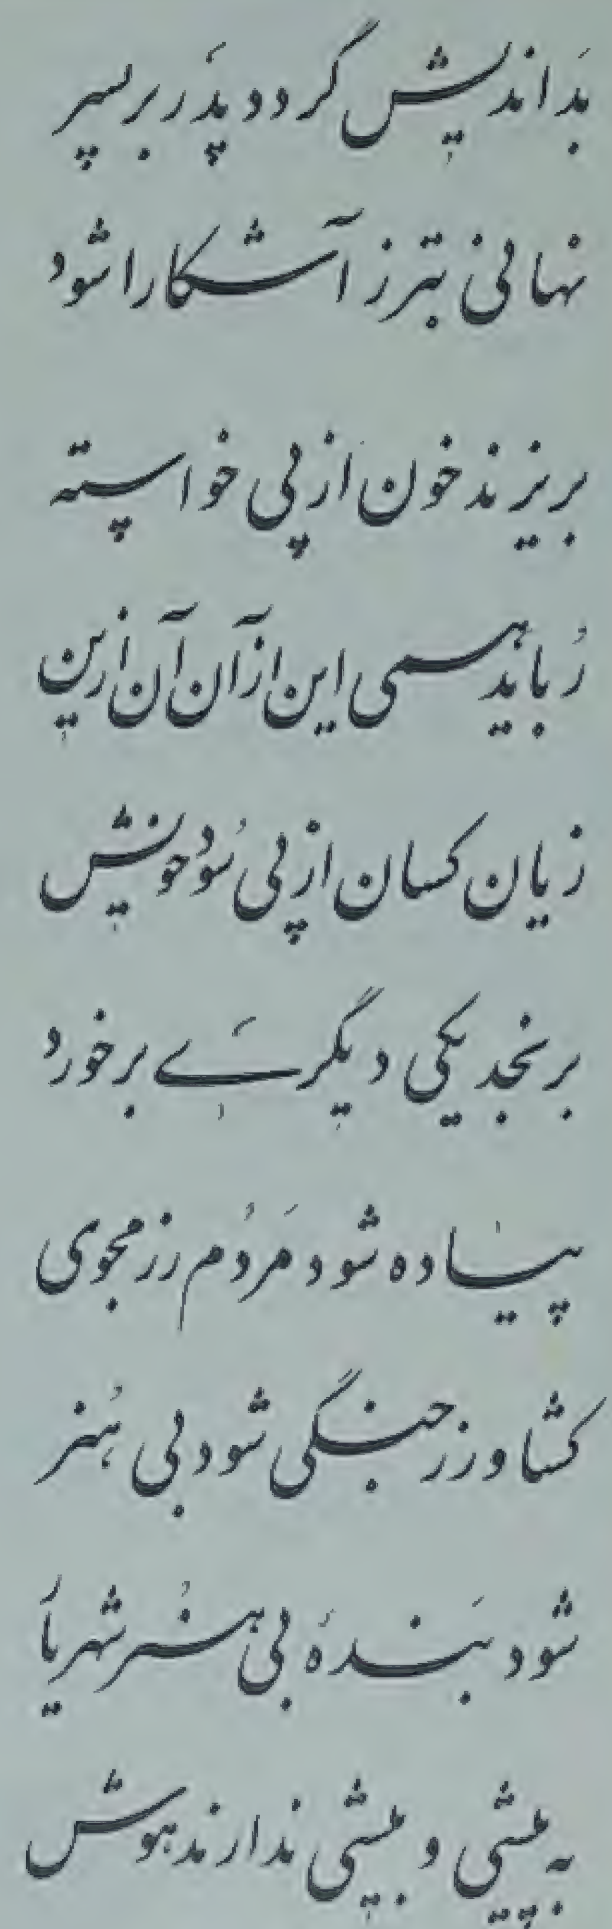 بداندیش گردد پدر بر پسر
نهانی بتر ز آشکارا شود
بریزند خون از پی خواسته
رُباید همی این از آن آن ازین
زیان کسان از پی سُود خویش
برنجد یکی دیگرے برخورد
پیاده شود مَردُم رزمجوی
کشاورز جنگی شود بی هُنر
شود بَندهٔ بی هُنر شهریا
به پیشی و بیشی ندارند هوش